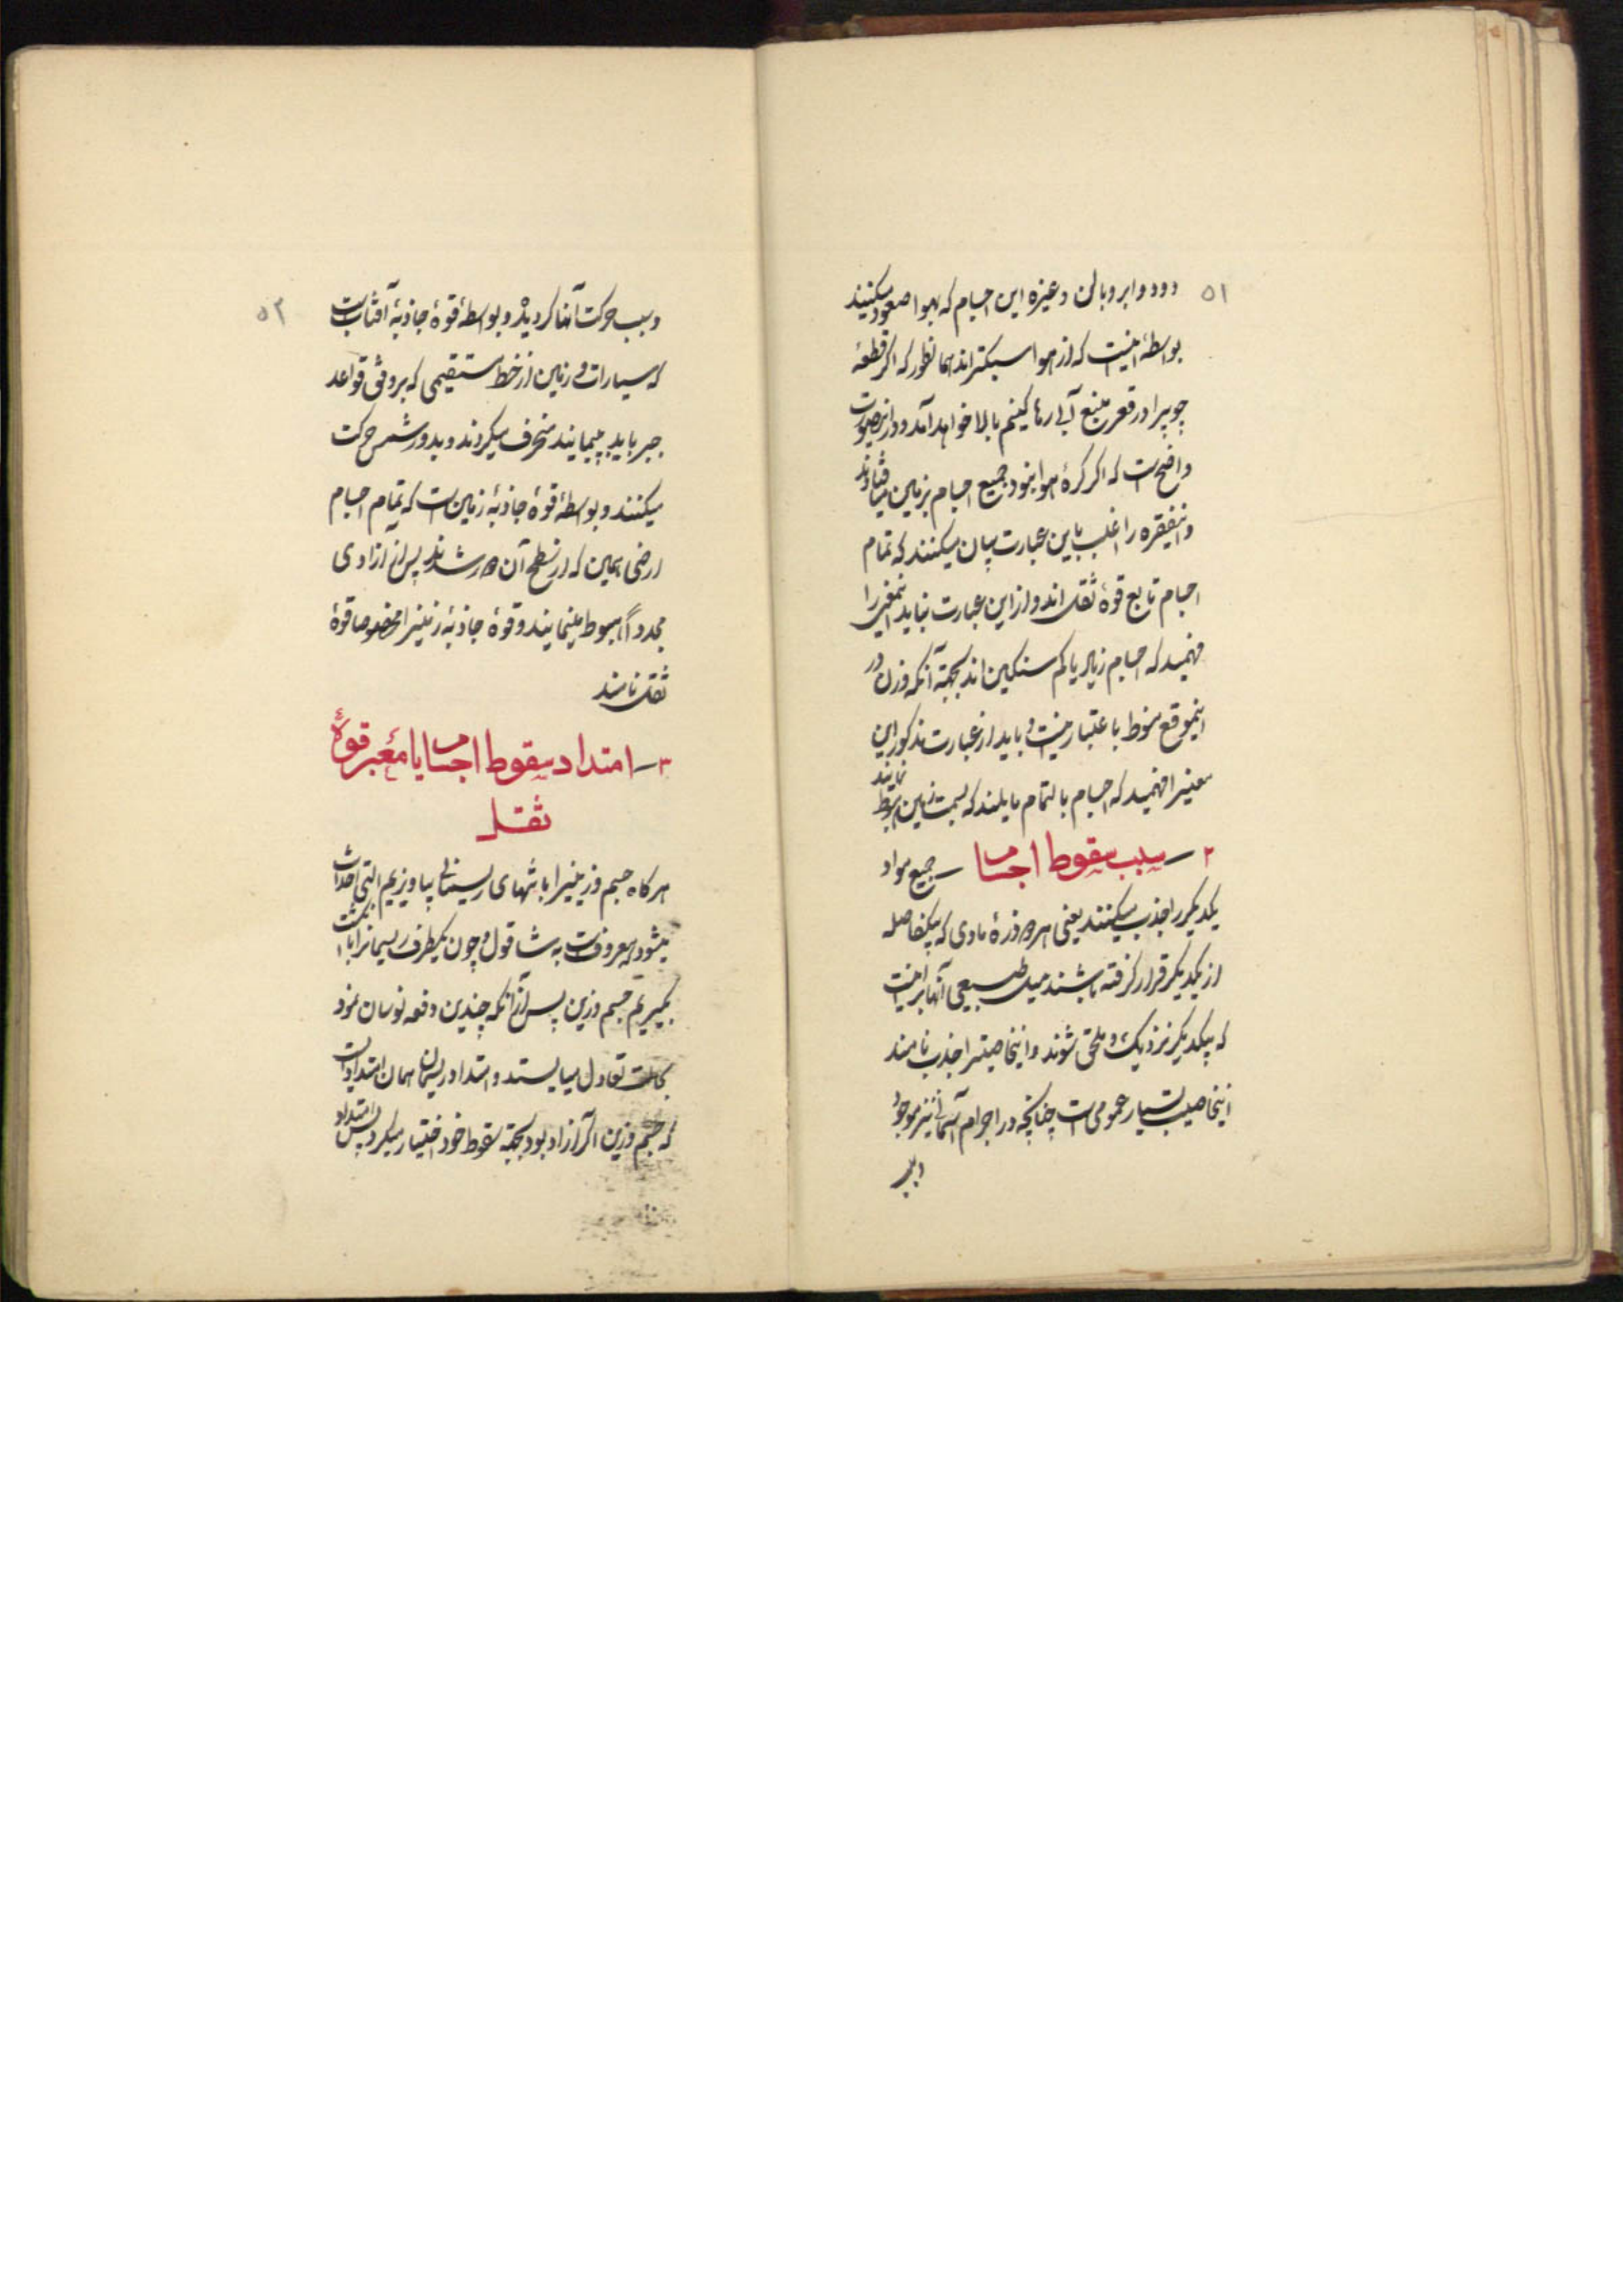 ۵۱
دود و ابر و بالن و غیره این اجسام که بهوا صعود میکنند
بواسطهٔ اینست که از هوا سبکترند همانطور که اگر قطعهٔ
چوبیرا در قعر منبع آبی رها کنیم بالا خواهد آمد و در اینصورت
واضح است که اگر کرهٔ هوا نبود جمیع اجسام بزمین میافتادند
و اینفقره را اغلب باین عبارت بیان میکنند که تمام
اجسام تابع قوهٔ ثقل اند و از این عبارت نباید اینمعنی را
فهمید که اجسام زیاد یا کم سنگین اند بجهة آنکه وزن در
اینموقع منوط باعتبار نیست و باید از عبارت مذکور این
معنیرا فهمید که اجسام بالتمام مایلند که بسمت زمین هبوط
نمایند
۲ – سبب سقوط اجسام – جمیع مواد
یکدیگر را جذب میکنند یعنی هر دو ذرهٔ مادی که بیکفاصله
از یکدیگر قرار گرفته باشند میل طبیعی آنها بر اینست
که بیکدیگر نزدیک و ملحق شوند و اینخاصیترا جذب نامند
اینخاصیت بسیار عمومی است چنانچه در اجرام آسمانی نیز موجود
و سبب
۵۲
و سبب حرکت آنها گردیده و بواسطهٔ قوهٔ جاذبهٔ آفتاب است
که سیارات و زمین از خط مستقیمی که بر وفق قواعد
جبر باید بپیمایند منحرف میگردند و بدور شمس حرکت
میکنند و بواسطهٔ قوهٔ جاذبهٔ زمین است که تمام اجسام
ارضی همین که از سطح آن دور شدند پس از آزادی
مجدداً هبوط مینمایند و قوهٔ جاذبهٔ زمینرا مخصوصا قوهٔ
ثقل نامند
۳ – امتداد سقوط اجسام یا معبر قوهٔ
ثقل
هر گاه جسم وزینیرا بانتهای ریسمانی بیاویزیم آلتی احداث
میشود که معروفست به شاقول و چون یکطرف ریسمانرا بانگشت
بگیریم جسم وزین پس از آنکه چندین دفعه نوسان نمود
بحالت تعادل میایستد و امتداد ریسمان همان امتدادیست
که جسم وزین اگر آزاد بود بجهة سقوط خود اختیار میکرد پس امتداد